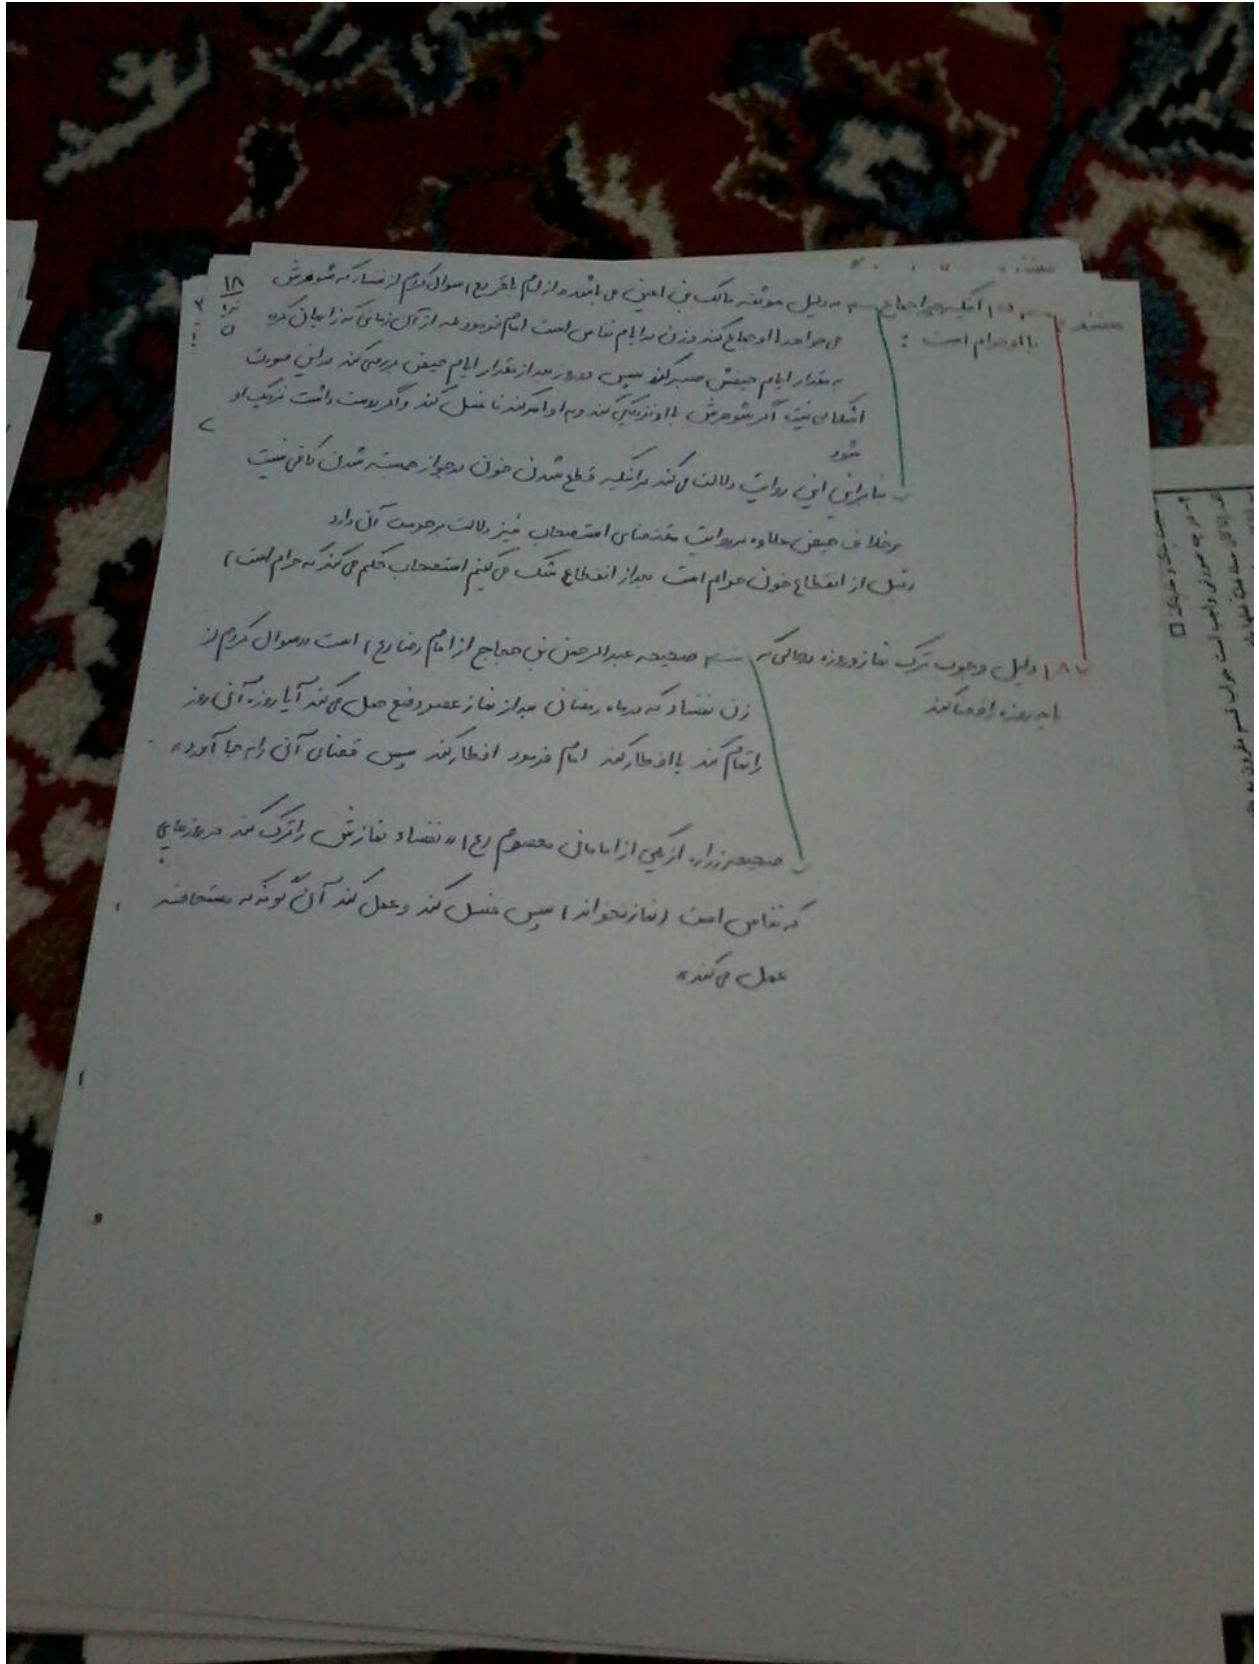 ۱۸
مستند
اینکه چرا جماع به دلیل موثقه مالک بن اعین می باشد از امام باقر (ع) سوال کردم از نفساء که شوهرش
با او حرام است :
می خواهد با او جماع کند و زن در ایام نفاس است امام فرمود بله از آن زمانی که زایمان کرده
به مقدار ایام حیضش صبر کند سپس دو روز بعد از مقدار ایام حیض بررسی کند در این صورت
اشکالی نیست اگر شوهرش با او نزدیکی کند و به او امر کند تا غسل کند و اگر دوست داشت نزدیک او
شود
بنابراین این روایت دلالت می کند بر اینکه قطع شدن خون در جواز همبستر شدن کافی نیست
برخلاف حیض علاوه بر روایت مقتضای استصحاب نیز دلالت بر حرمت آن دارد
(قبل از انقطاع خون حرام است بعد از انقطاع شک می کنیم استصحاب حکم می کند که حرام است)
دلیل وجوب ترک نماز و روزه در حالی که صحیحه عبدالرحمن بن حجاج از امام رضا (ع) است «سوال کردم از
باید روزه را قضا کند
زن نفساء که در ماه رمضان بعد از نماز عصر وضع حمل می کند آیا روزه آن روز
را تمام کند یا افطار کند امام فرمود افطار کند سپس قضای آن را به جا آورد»
صحیحه زراره از یکی از امامان معصوم (ع) «نفساء نمازش را ترک کند در روزهایی
که نفاس است (نماز نخواند) سپس غسل کند و عمل کند آن گونه که مستحاضه
عمل می کند»